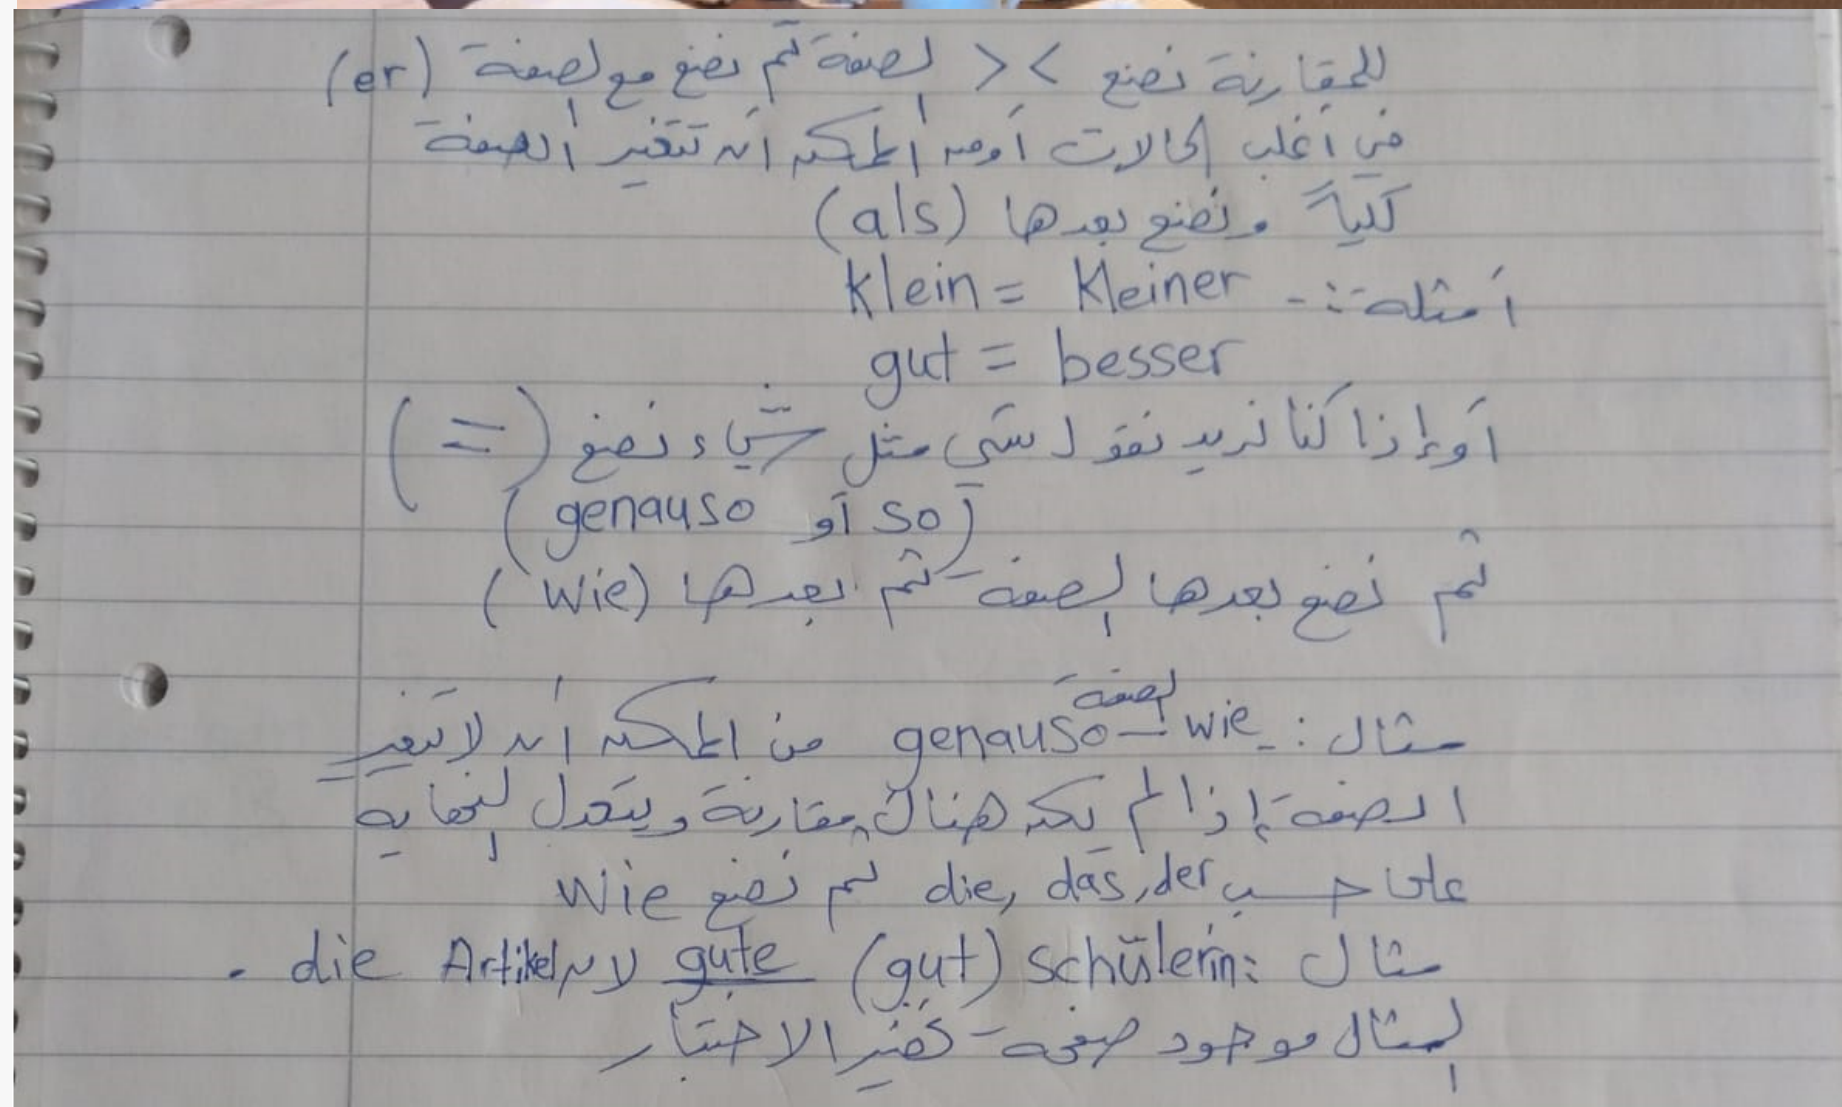 للمقارنة نضع > < الصفة ثم نضع مع الصفة (er)
في أغلب الحالات أو من الممكن أن تتغير الصفة
كلياً ونضع بعدها (als)
أمثلة:- klein = kleiner
gut = besser
أو إذا كنا نريد نقول شي مثل شيء نضع (=)
(so أو genauso)
ثم نضع بعدها الصفة ثم بعدها (wie)
الصفة
مثال: genauso – wie من الممكن أن لا تتغير
الصفة إذا لم يكن هناك مقارنة ويتعدل النهاية
على حسب die, das, der ثم نضع wie
مثال: schülerin (gut) gute لان Artikel die .
المثال موجود صفحة تحضير الاختبار